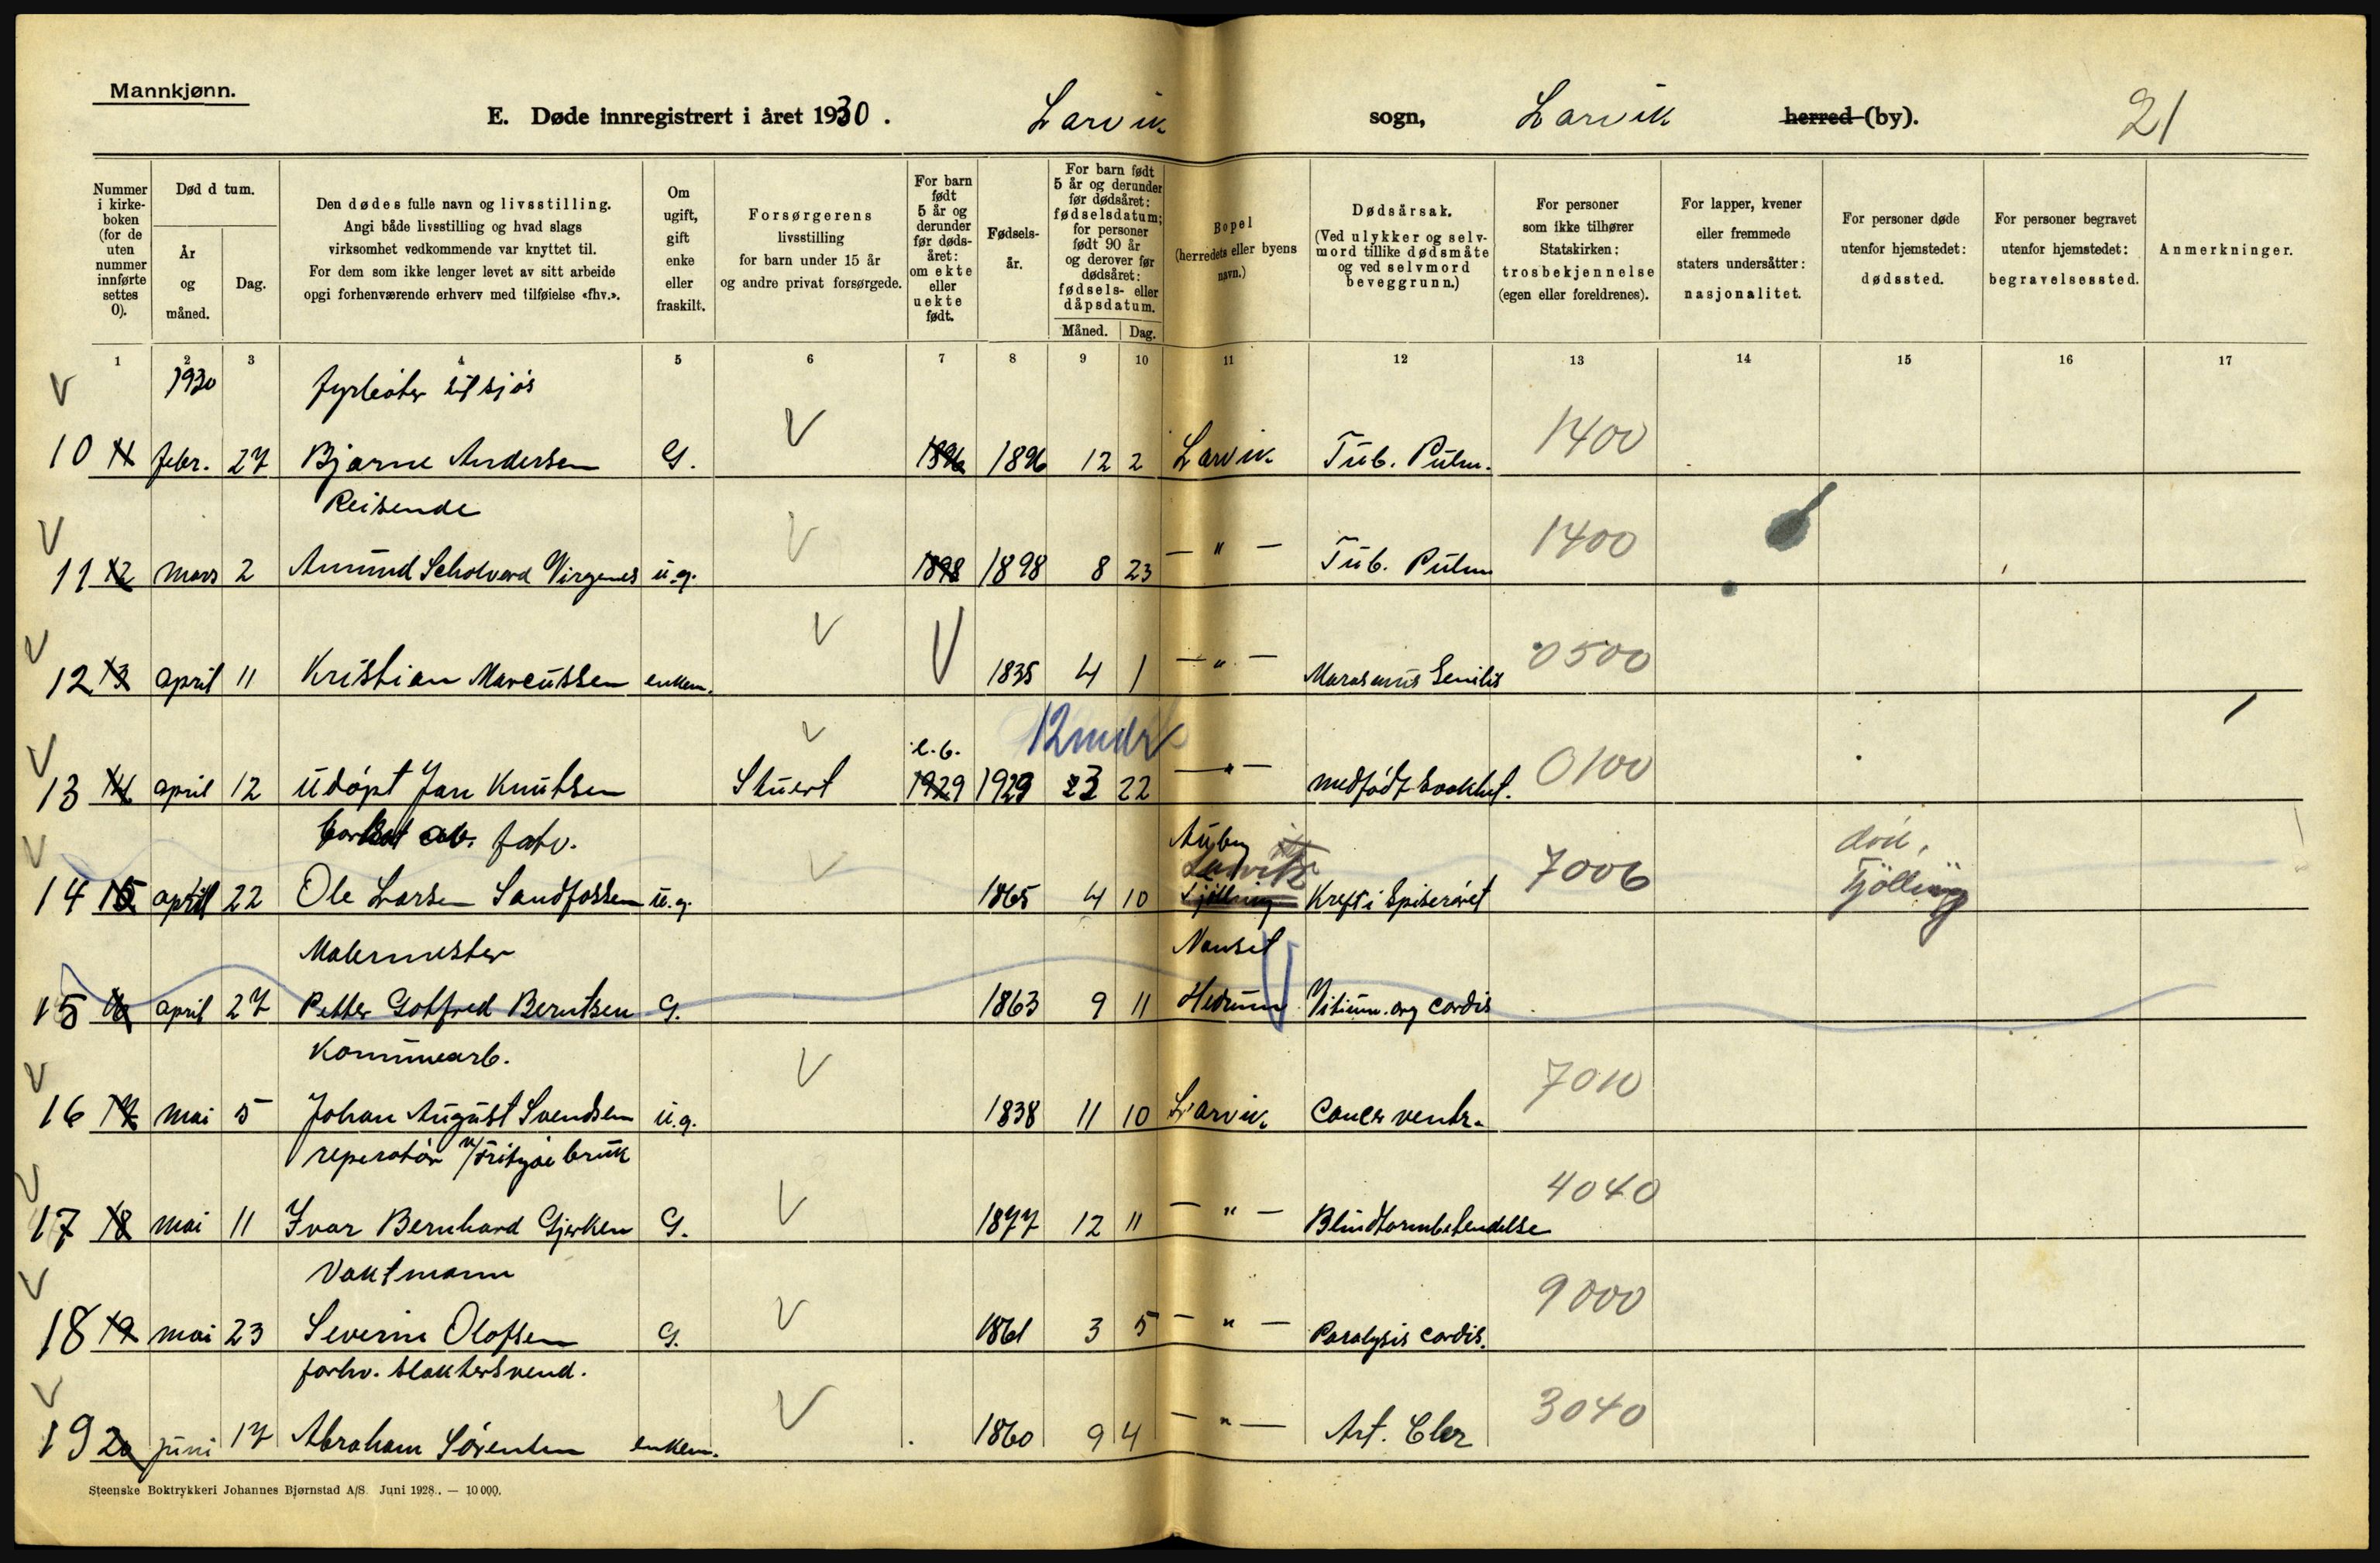 Mannkjønn.
E. Døde innregistrert i året 1930. Larvik sogn, Larvik herred (by). 21
Nummer i kirke-boken (for de uten nummer innførte settes 0).
Død d tum.
År og måned.
Dag.
Den dødes fulle navn og livsstilling.
Angi både livsstilling og hvad slags
virksomhet vedkommende var knyttet til.
For dem som ikke lenger levet av sitt arbeide
opgi forhenværende erhverv med tilføielse «fhv.».
Om ugift, gift enke eller fraskilt.
Forsørgerens livsstilling for barn under 15 år og andre privat forsørgede.
For barn født 5 år og derunder før døds-året: om ekte eller uekte født.
Fødsels-år.
For barn født 5 år og derunder før dødsåret: fødselsdatum; for personer født 90 år og derover før dødsåret: fødsels- eller dåpsdatum.
Måned. Dag.
Bopel (herredets eller byens navn.)
Dødsårsak. (Ved ulykker og selv-mord tillike dødsmåte og ved selvmord beveggrunn.)
For personer som ikke tilhører Statskirken: trosbekjennelse (egen eller foreldrenes).
For lapper, kvener eller fremmede staters undersåtter: nasjonalitet.
For personer døde utenfor hjemstedet: dødssted.
For personer begravet utenfor hjemstedet: begravelsessted.
Anmerkninger.
1 2 3 4 5 6 7 8 9 10 11 12 13 14 15 16 17
1930 fyrbøter til sjøs
10 11 febr. 27 Bjarne Andersen G. 1896 1896 12 2 Larvik Tub. Pulm. 1400
Reisende
11 12 mars 2 Amund Scholverd Virgenes u.g. 1898 1898 8 23 — " — Tub. Pulm 1400
12 13 april 11 Kristian Marcussen enkem. 1835 4 1 — " — Marasmus Senilis 0500
e.b. 12 mdr
13 14 april 12 udøpt Jan Knutsen Stuert 1929 1929 3 22 — " — medfødt svakhet. 0100
av. fatv.
14 15 april 22 Ole Larsen Sandfossen u.g. 1865 4 10 Larvik Tjølling Kreft i Spiserøret 7006 Tjølling
Malermester Nanset
15 16 april 27 Petter Gotfred Berntsen G. 1863 9 11 Hedrum Vitium. org cordis
Kommunearb.
16 17 mai 5 Johan August Svendsen u.g. 1838 11 10 Larvik. Cancer ventr. 7010
reperatør v/Fritzøe bruk
17 18 mai 11 Ivar Bernhard Gjerken G. 1877 12 11 — " — Blindtarmbetendelse 4040
Vaktmann
18 19 mai 23 Severin Olofsen G. 1861 3 5 — " — Paralysis cordis. 9000
forhv. slaktersvend.
19 20 juni 17 Abraham Sørensen enkem. 1860 9 4 — " — Art. Cler 3040
Steenske Boktrykkeri Johannes Bjørnstad A/S. Juni 1928. — 10 000.